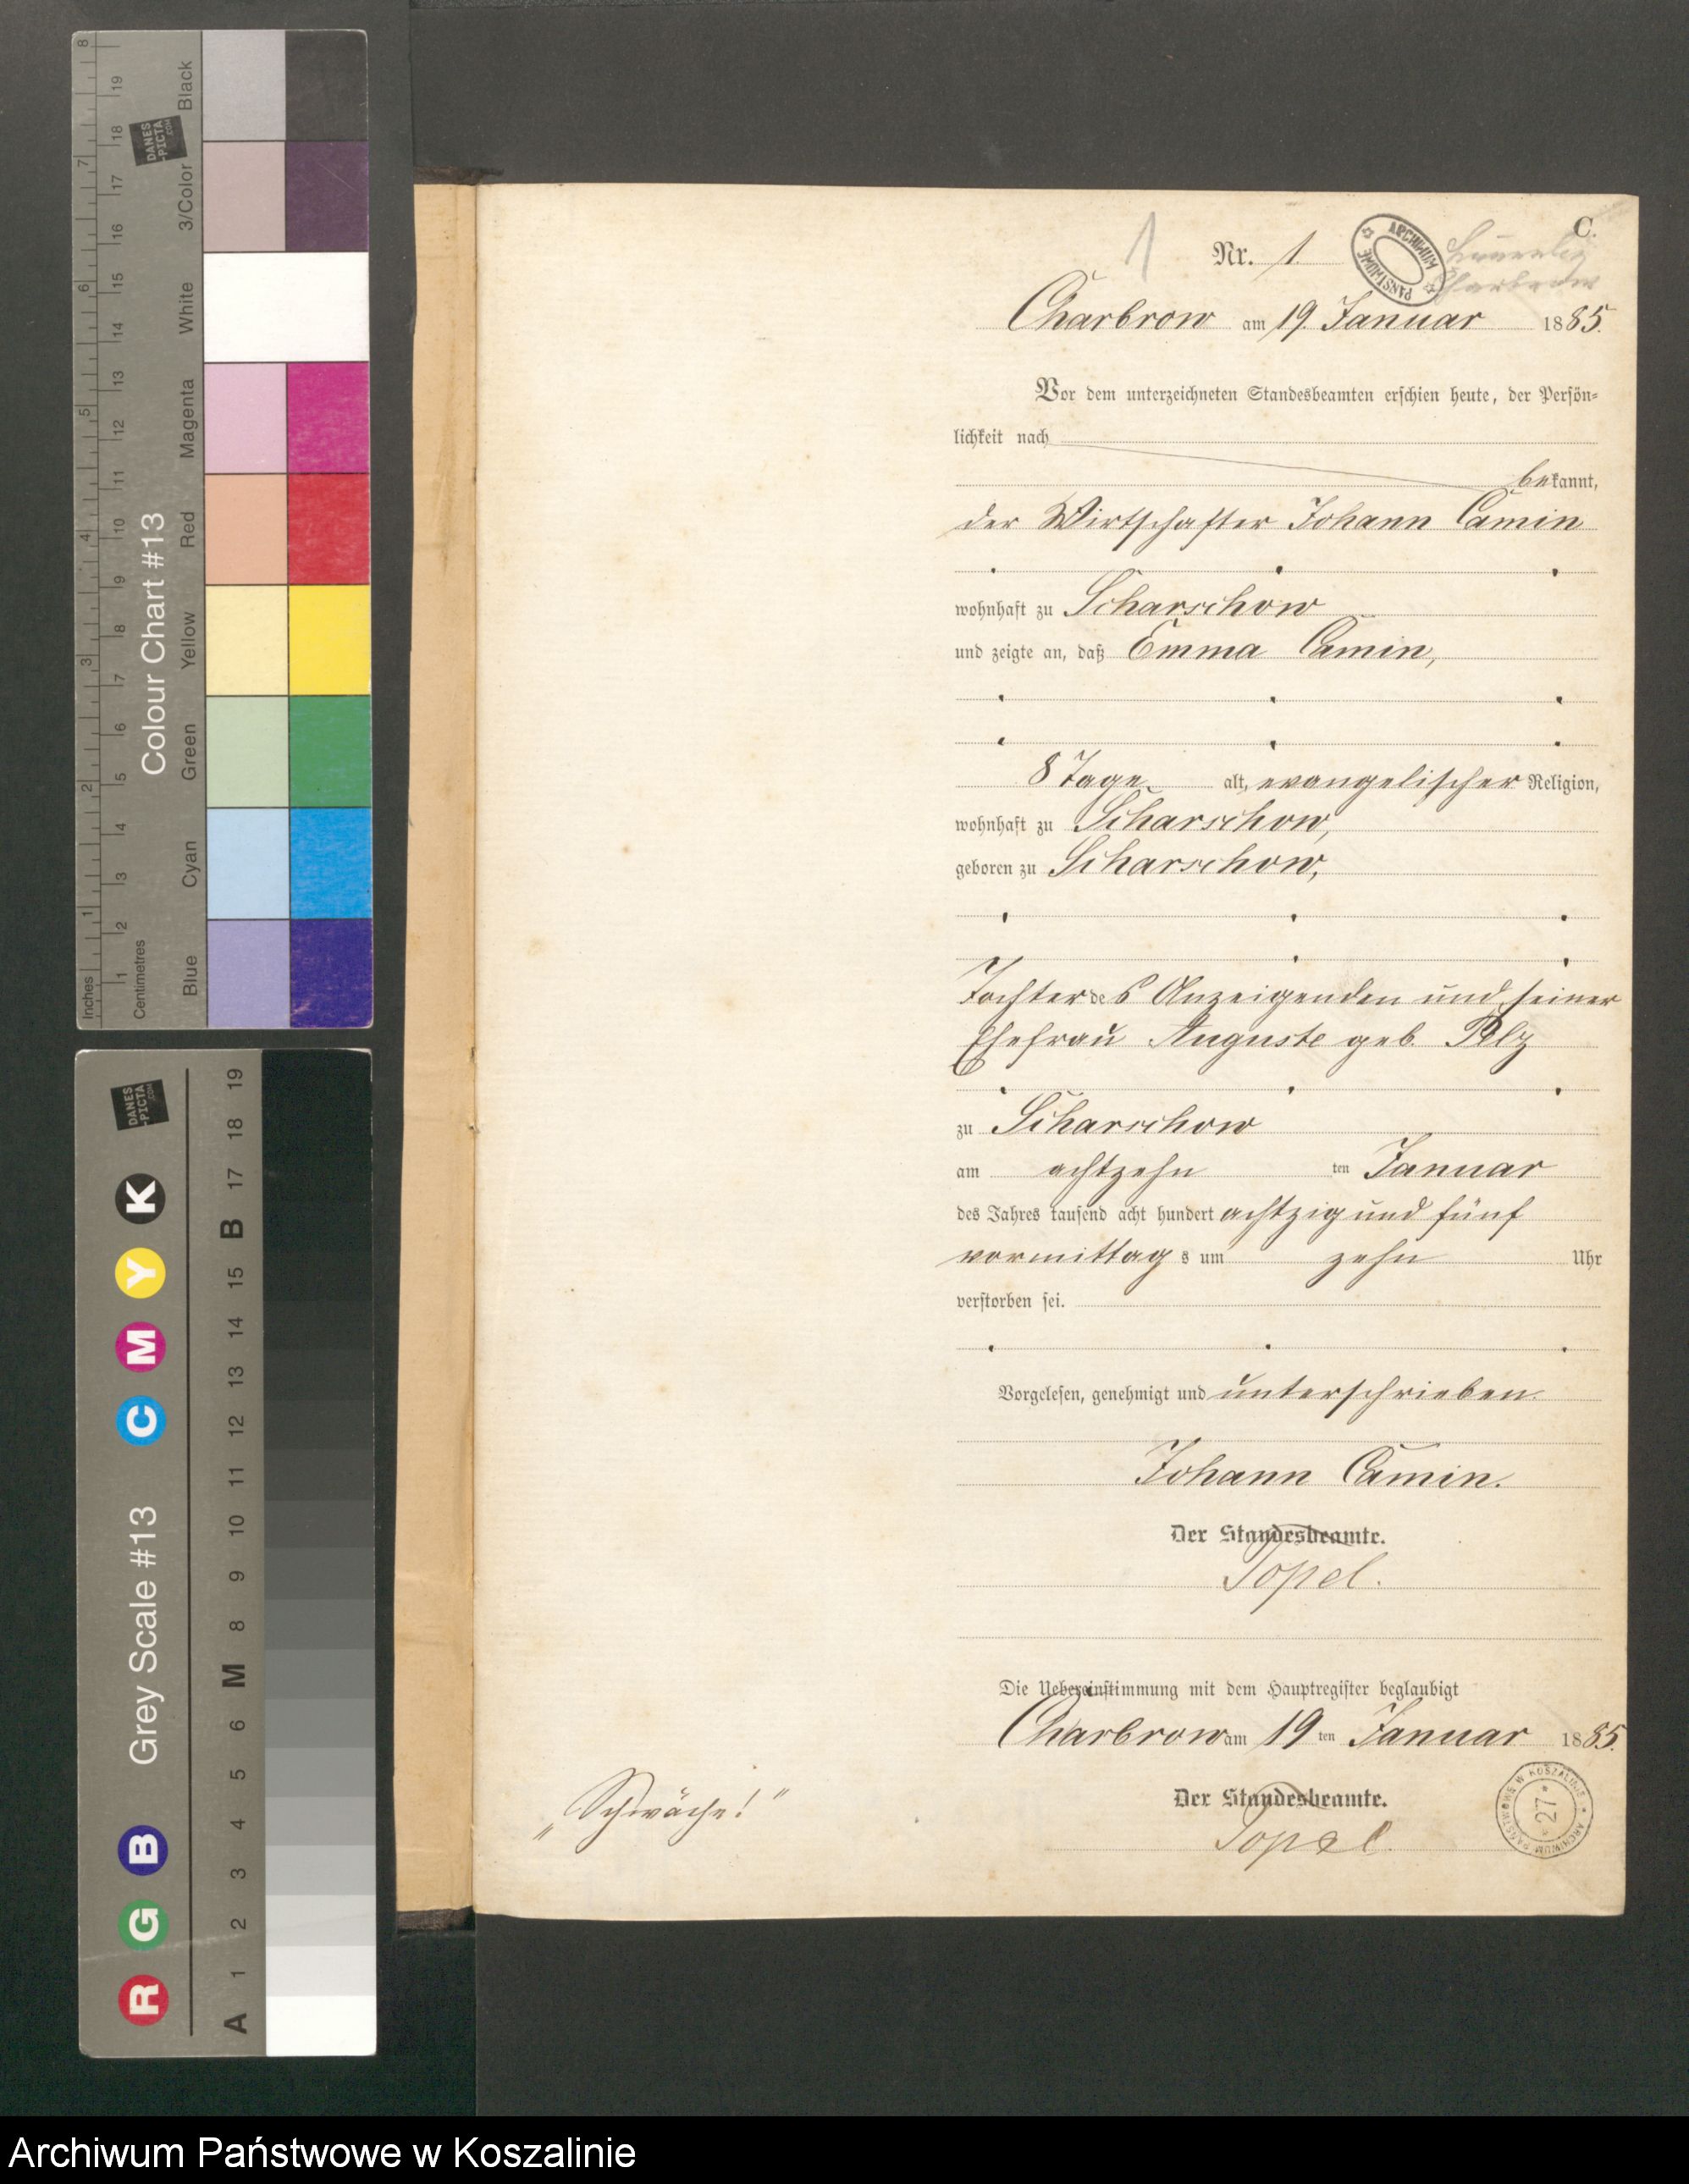 C.
1
Nr. 1.
ARCHIWUM PAŃSTWOWE
Charbrow am 19. Januar 1885.
Vor dem unterzeichneten Standesbeamten erschien heute, der Persön-
lichkeit nach
bekannt,
der Wirtschafter Johann Camin
wohnhaft zu Scharschow
und zeigte an, daß Emma Camin,
8 Tage alt, evangelischer Religion,
wohnhaft zu Scharschow,
geboren zu Scharschow,
Tochter des Anzeigenden und seiner
Ehefrau Auguste geb. Pelz
zu Scharschow
am achtzehn ten Januar
des Jahres tausend acht hundert achtzig und fünf
vormittags um zehn Uhr
verstorben sei.
Vorgelesen, genehmigt und unterschrieben.
Johann Camin.
Der Standesbeamte.
Topel.
Die Uebereinstimmung mit dem Hauptregister beglaubigt
Charbrow am 19 ten Januar 1885.
Der Standesbeamte.
Topel.
„Schwäche!"
ARCHIWUM PAŃSTWOWE W KOSZALINIE
* 27 *
Colour Chart #13
Inches
1 2 3 4 5 6 7 8
Centimetres
1 2 3 4 5 6 7 8 9 10 11 12 13 14 15 16 17 18 19
Blue Cyan Green Yellow Red Magenta White 3/Color Black
DANES
-PICTA
.COM
Grey Scale #13
R G B C M Y K
A 1 2 3 4 5 6 M 8 9 10 11 12 13 14 15 B 17 18 19
DANES
-PICTA
.COM
Archiwum Państwowe w Koszalinie